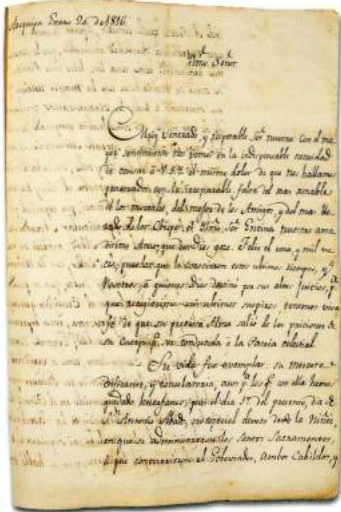 Arequipa Enero 24 de 1816
Yllmo. Señor
Muy Venerado, y respetable Sor. nuestro: Con el ma-
yor sentimiento nos vemos en la indispensable necesidad
de comunicar a V.S.Y. el mismo dolor de que nos hallamos
penetrados con la irreparable falta del mas amable
de los mortales, del mejor de los Amigos, y del mas
de los Obispos, el Yllmo. Sor. Encina nuestro ama
dicimo Amo, que de Dios goze. Felices el una, y mil ve
ces, puedan que le conocieron estos ultimos tiempos, y
nosotros, a quienes Dios destino pa. sus altos juicios, pa.
que recogieramos sus ultimos suspiros tenemos viva
fé de que su preciosa Alma salió de las prisiones de
su Cuerpo pa. ser conducida a la Patria celestial.
Su vida fue exemplar, su muerte
edificante, y consolatoria, aun pa. los qe. con ella hemos
quedado huerfanos; pues el dia 17 del presente, dia de
Sn. Antonio Abad, su especial devoto desde la Niñez,
en que se le administraron los Santos Sacramentos,
a que concurrieron el Gobernador, ambos Cabildos, y